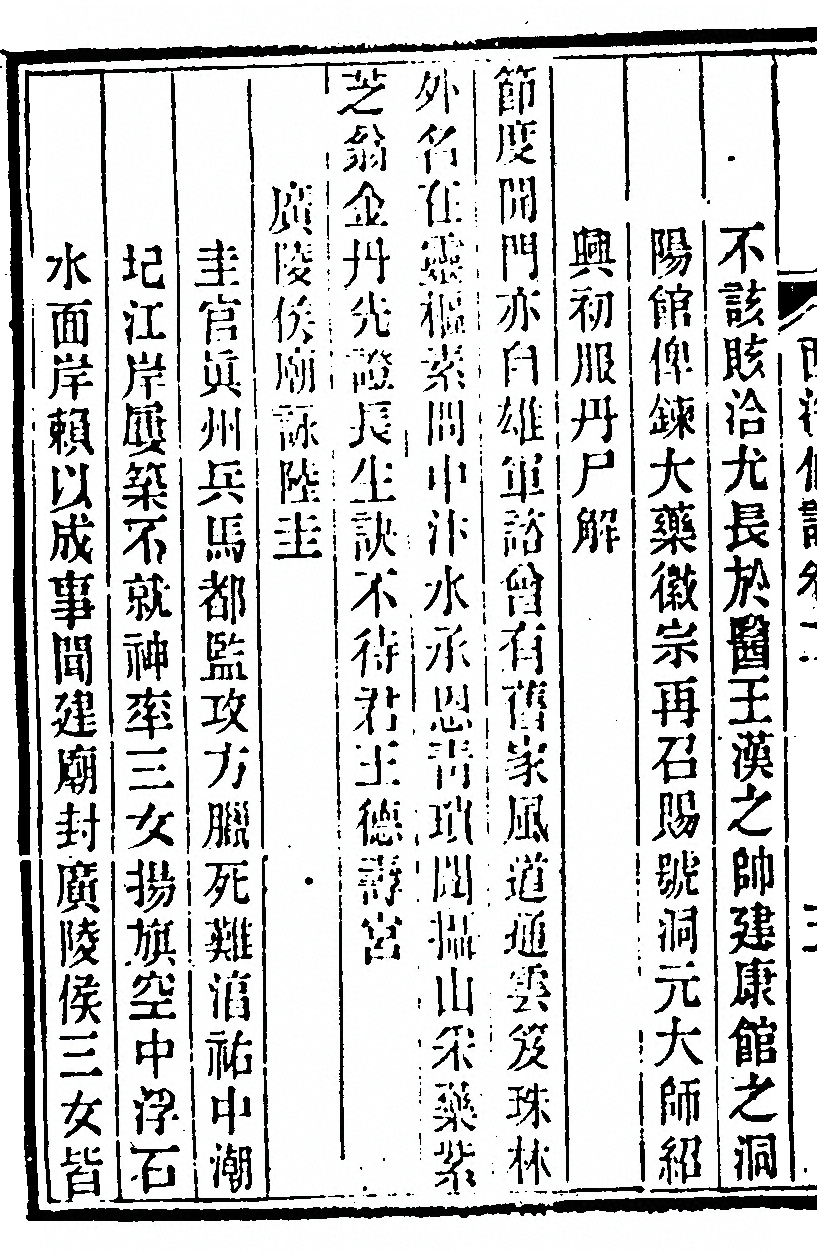 不該賅洽尤長於醫王漢之帥建康館之洞
陽館俾鍊大藥徽宗再召賜號洞元大師紹
興初服丹尸解
節度開門亦自雄軍諮曾有舊家風道通雲笈珠林
外名在靈樞素問中汴水承恩青瑣闥攝山采藥紫
芝翁金丹先證長生訣不待君王德壽宮
廣陵侯廟詠陸圭
圭官眞州兵馬都監攻方臘死難湻祐中潮
圮江岸屢築不就神率三女揚旗空中浮石
水面岸賴以成事聞建廟封廣陵侯三女皆